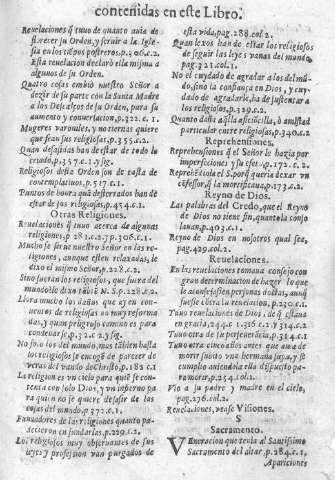 contenidas en este Libro.
Reuelaciones q̃ tuuo de quanto auia de
florecer su Orden, y seruir a la Igle-
sia en los tiẽpos postreros, p.306.c.2.
Esta reuelacion declarò ella misma a
algunos de su Orden.
Quatro cosas embiò nuestro Señor a
dezir de su parte con la Santa Madre
a los Descalços de su Orden, para su
aumento y conseruacion, p.322.c.1.
Mugeres varoniles, y no tiernas quiere
que sean sus religiosas, p.355.c.2.
Quan desasidas han de estar de todo lo
criado, p.357.c.1. y sig.
Religiosos desta Orden son de casta de
contemplatiuos, p.517.c.1.
Puntos de honra quã desterrados han de
estar de sus religiosas, p.454.c.1.
Otras Religiones.
Reuelaciones q̃ tuuo acerca de algunas
religiones, p.281.c.2. y 306.c.1.
Mucho se sirue nuestro Señor en las re-
ligiones, aunque estèn relaxadas, le
dixo el mismo Señor, p.228.c.2.
Sino fueran los religiosos, que fuera del
mundo? le dixo tambiẽ N.S. p.228.c.2.
Llora mucho los daños que ay en con-
uentos de religiosas no muy reforma
das, y quan peligroso camino es para
condenarse, p.324.c.2. y sig.
No solo los del mundo, mas tãbien hasta
los religiosos se encogẽ de parecer de
veras del vando de Christo, p.182 c.1
La religion es vn cielo para quiẽ se con-
tenta con solo Dios, y vn infierno pa
ra quien no se quiere desasir de las
cosas del mundo, p.372.c.1.
Fundadores de las religiones quanto pa-
decieron en fundarlas, p.229.c.2.
Los religiosos muy obseruantes de sus
leyes y profession van purgados de
esta vida, pag.288.col.2.
Quan lexos han de estar los religiosos
de seguir las leyes vanas del mundo,
pag.321.col.1.
No el cuydado de agradar a los del mũ-
do, sino la confiança en Dios, y cuy-
dado de agradarle, ha de sustentar a
los religiosos, p.329.c.2.
Quanto daña aq̃lla aficiõcilla, ò amistad
particular entre religiosas, p.340.c.2.
Reprehensiones.
Reprehensiones q̃ el Señor le hazia por
imperfecciones y su efeto, p.172.c.2.
Reprehẽdiola el S. porq̃ queria dexar vn
cõfessor, q̃ la mortificaua, p.173.c.2.
Reyno de Dios.
Las palabras del Credo, que el Reyno
de Dios no tiene fin, quanto la conso
lauan, p.403.c.1.
Reyno de Dios en nosotros qual sea,
pag.429.col.2.
Reuelaciones.
En las reuelaciones tomaua consejo con
gran determinacion de hazer lo que
le aconsejassen personas doctas, aunq̃
fuesse contra la reuelacion, p.230.c.1.
Tuuo reuelaciones de Dios, de q̃ estaua
en gracia, 244.c.1. 316 c.2. y 324.c.2
Tuuo otra de su perseuerancia, p.324.c.2.
Tuuo otra cinco años antes que auia de
morir subito vna hermana suya, y se
cumplio auiendola ella dispuesto pa-
ra morir, p.254.col.1.
Vio a su padre y madre en el cielo,
pag.276.col.2.
Reuelaciones, vease Visiones.
S
Sacramento.
Veneracion que tenia al Santissimo
Sacramento del altar, p.284.c.1,
Apariciones